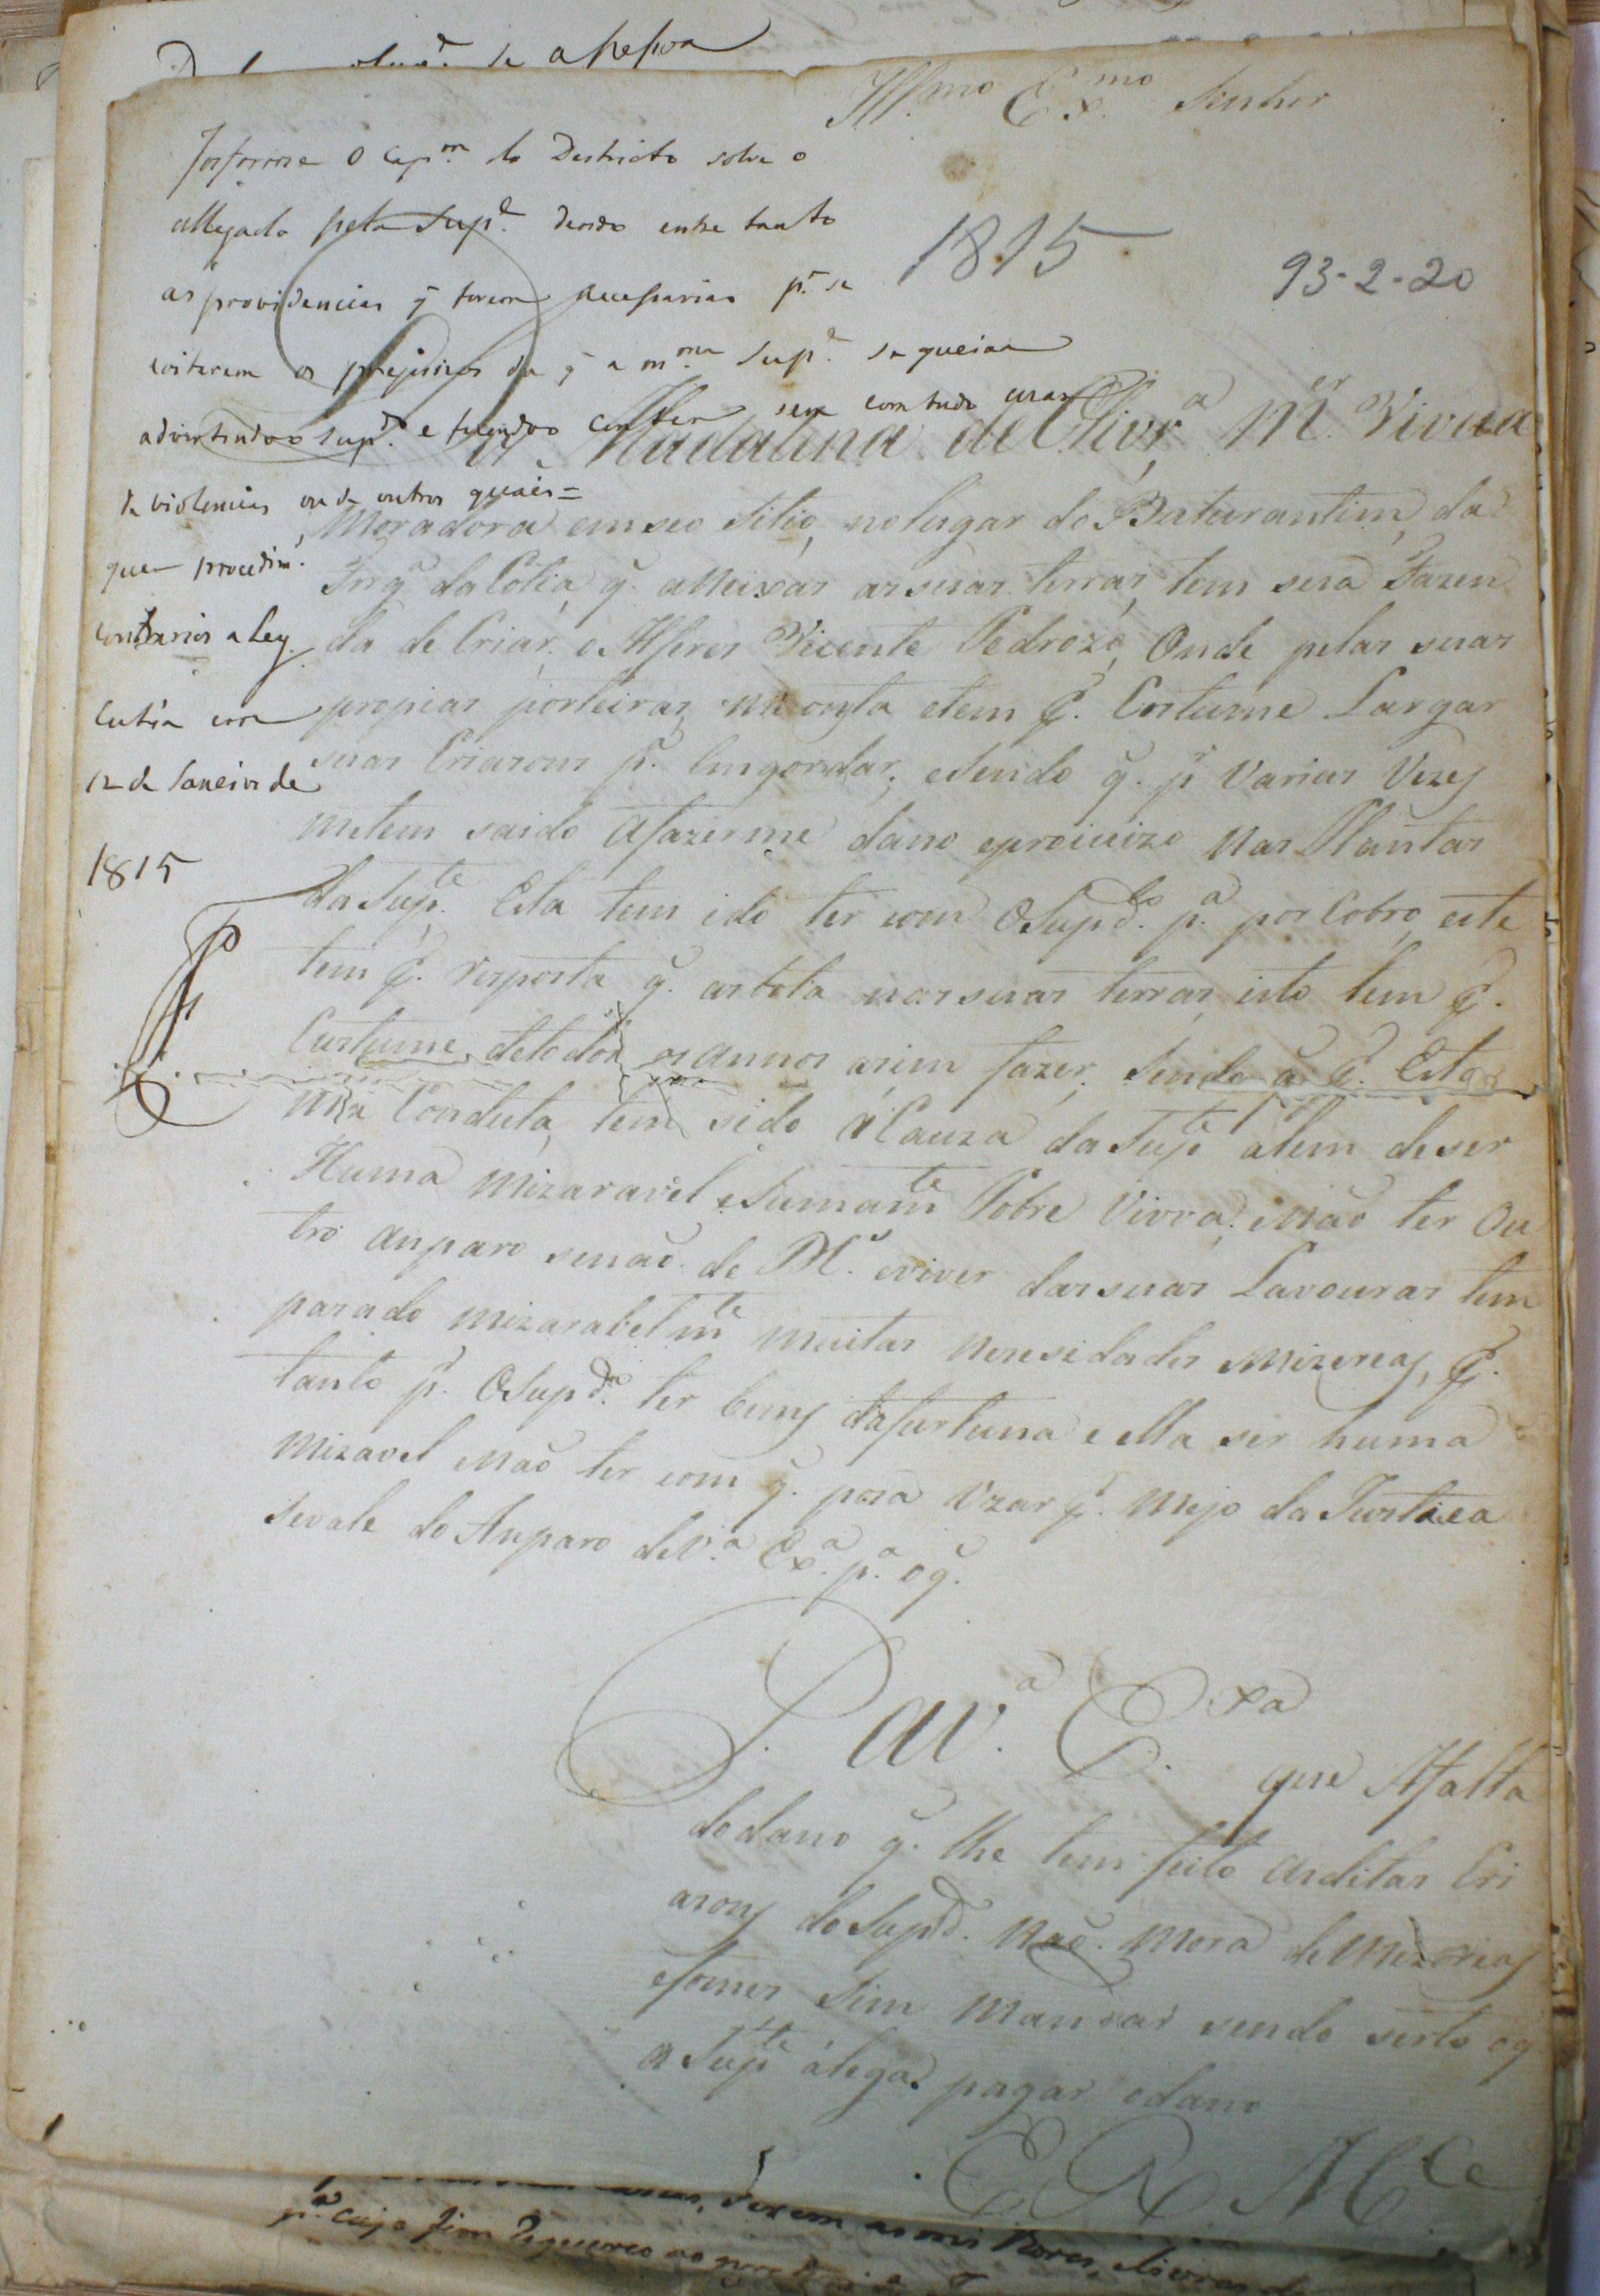 Ill.mo Ex.mo Senhor
Informe o Cap.m do Districto sobre o
allegado pela Sup.e dando entre tanto
as providencias q̃ forem necessarias p.a se
evitarem os prejuizos de q̃ a m.ma Sup.e se queixa
advertindo o Sup.do e fazendo conter sem com tudo usar
de violencias ou de outros quaes=
quer procedim.
contrarios a Ley.
Cutia em
12 de Janeiro de
1815
1815
93-2-20
Madalena de Olivr.a M.er Viuva
Moradora em seo Sitio, no lugar do Buturantim, da
Frg.a da Cotia, q̃. a Meixas as suas terras, tem sua Fazen
da de Criar, o Alferes Vicente Pedrozo, Onde pelas suas
propias porteiras, me emsta e tem p̃. Custume Largar
suas Criasons p.a Emgordar, e Sendo q̃. p.r Varias Vezes
me tem saido a fazerme dano e projuizo nas Plantas
da Sup.te Esta tem ido ter com O Sup.do p.a por Cobro, este
tem p̃. resposta q̃. as bota nas suas terras, isto tem p̃.
Custume, de todos os annos asim fazer, Sendo a q̃. Esta
Má Conduta, tem sido á Cauza da Sup.te alem de ser
Huma Mizaravel e Sumam.te Pobre Viova, e Não ter Ou
tro anparo senaõ de M.er e viver das suas Lavouras tem
pasado mizarabelm.te muitas nesesidades e Mizereas, p̃.
tanto p.r O Sup.do ter bens da furtuna e ella ser huma
Mizavel e Naõ ter com q̃. posa Vzar p̃. Mejo da Justisea
se vale do Anparo de V.a Ex.a p.a o q̃.
P. a V.a Ex.a que A falta
do dano q̃. lhe tem feito as ditas Cri
asons do Sup.do Naõ. Mora de Mizereas
e fomes Sim Mandar sendo serto o q̃
a Sup.te álega. pagar o dano
E R M.ce